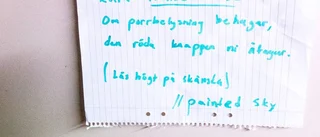 Om porrbelysning behagar,
den röda knappen ni åtager.
(Läs högt på skånska)
// painted sky